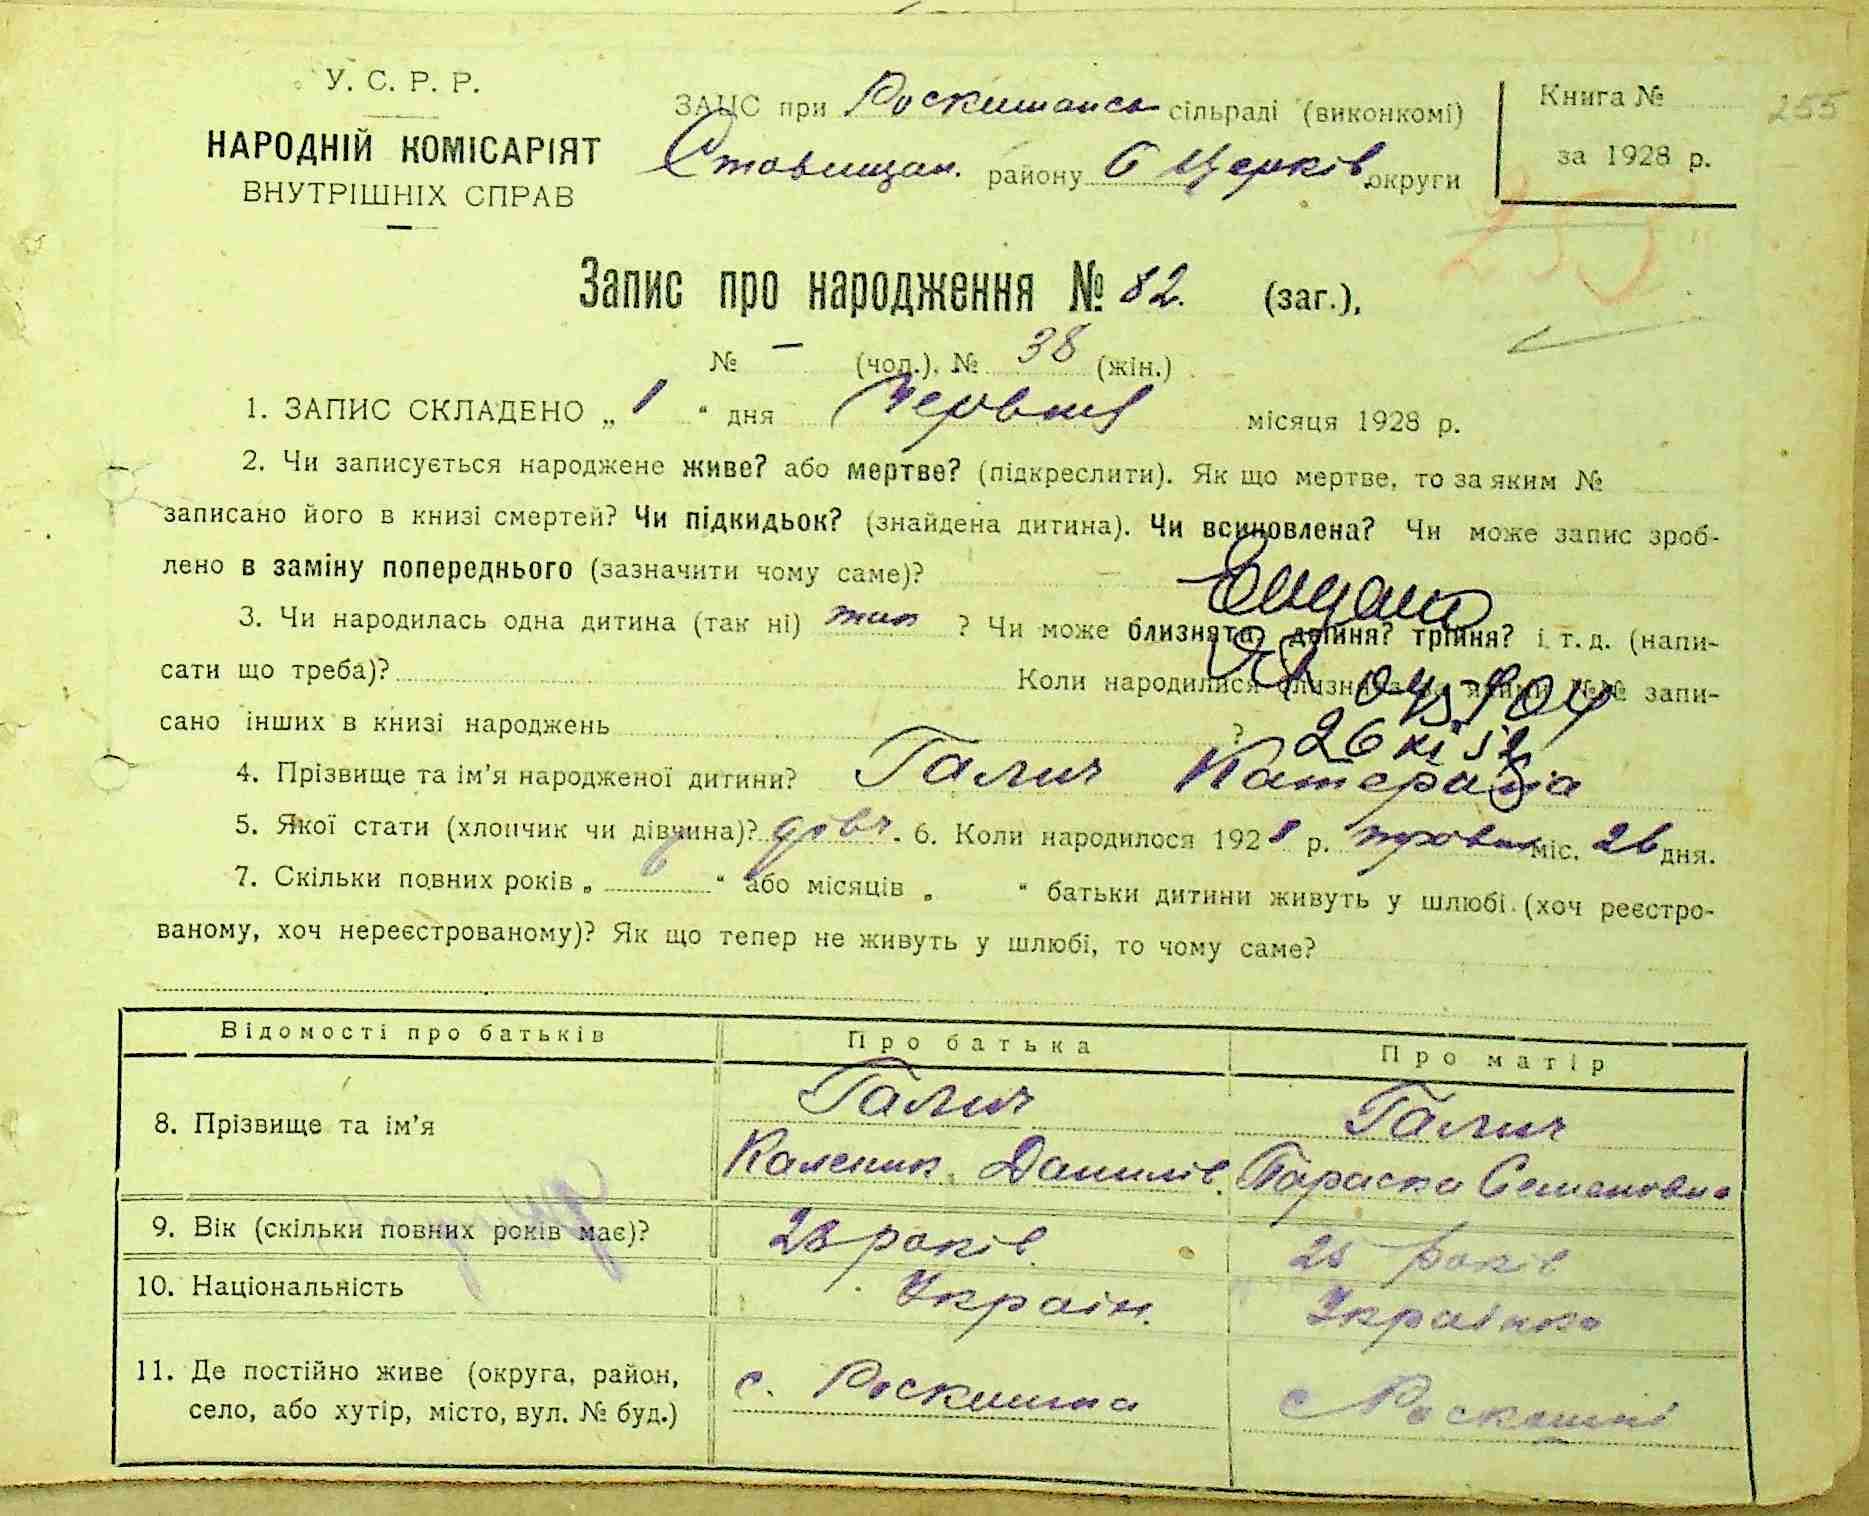 У. С. Р. Р.
НАРОДНІЙ КОМІСАРІЯТ
ВНУТРІШНІХ СПРАВ
ЗАЦС при Роскишансь сільраді (виконкомі)
Ставищан. району Б Церків. округи
Книга №
за 1928 р.
255
255
Запис про народження № 82. (заг.),
№ — (чол.), № 38 (жін.)
1. ЗАПИС СКЛАДЕНО „ 1 “ дня Червня місяця 1928 р.
2. Чи записується народжене живе? або мертве? (підкреслити). Як що мертве, то за яким №
записано його в книзі смертей? Чи підкидьок? (знайдена дитина). Чи всиновлена? Чи може запис зроб-
лено в заміну попереднього (зазначити чому саме)?
3. Чи народилась одна дитина (так ні) так ? Чи може близнята, двійня? трійня? і т. д. (напи-
сати що треба)?
Коли народилися близнята за якими №№ запи-
сано інших в книзі народжень ?
26
4. Прізвище та ім’я народженої дитини? Галич Катерина
5. Якої стати (хлопчик чи дівчина)? дівч. 6. Коли народилося 1928 р. травня міс. 26 дня.
7. Скільки повних років „ “ або місяців „ “ батьки дитини живуть у шлюбі (хоч реєстро-
ваному, хоч нереєстрованому)? Як що тепер не живуть у шлюбі, то чому саме?
Відомості про батьків Про батька Про матір
8. Прізвище та ім’я
Галич
Каленик Данилів.
Галич
Параска Семеновна
9. Вік (скільки повних років має)? 28 років 25 років
10. Національність Україн. Українка
11. Де постійно живе (округа, район,
село, або хутір, місто, вул. № буд.)
с. Роскишна
с Роскишні